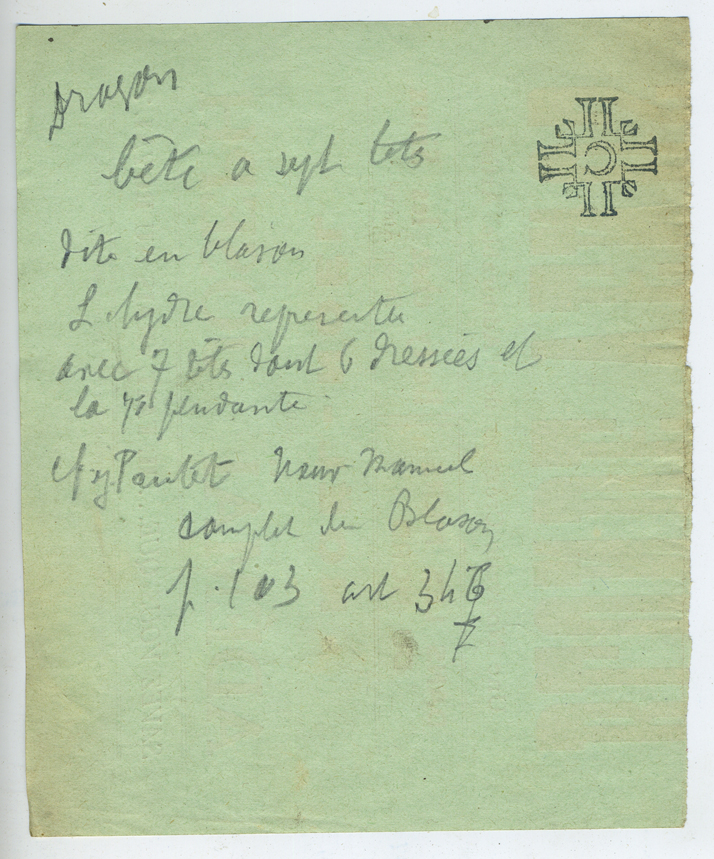 Dragon
bête a sept têts
dite en blason
L hydre représentée
avec 7 têts dont 6 dressées et
la 7e pendante
cf J Pautet Nouv Manuel
complet du Blason
p. 103 art 34
7